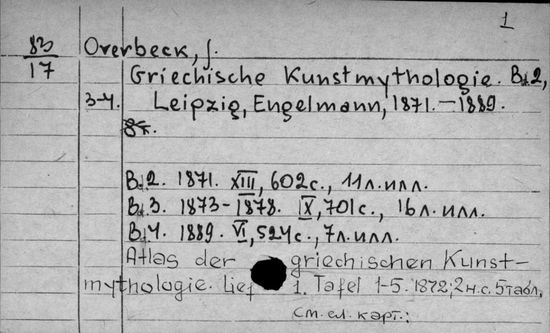 1
83
17
Overbeck, J.
Griechische Kunstmythologie. Bd 2,
3-4. Leipzig, Engelmann, 1871.-1889.
Bd 2. 1871. XIII, 602 с., 11 л. илл.
Bd 3. 1873-1878. IX, 701 с., 16 л. илл.
Bd 4. 1889. VI, 524 с., 7 л. илл.
Atlas der griechischen Kunst-
mythologie. Lief 1. Tafel 1-5. 1872; 2 н.с. 5 табл.
см. сл. карт.: